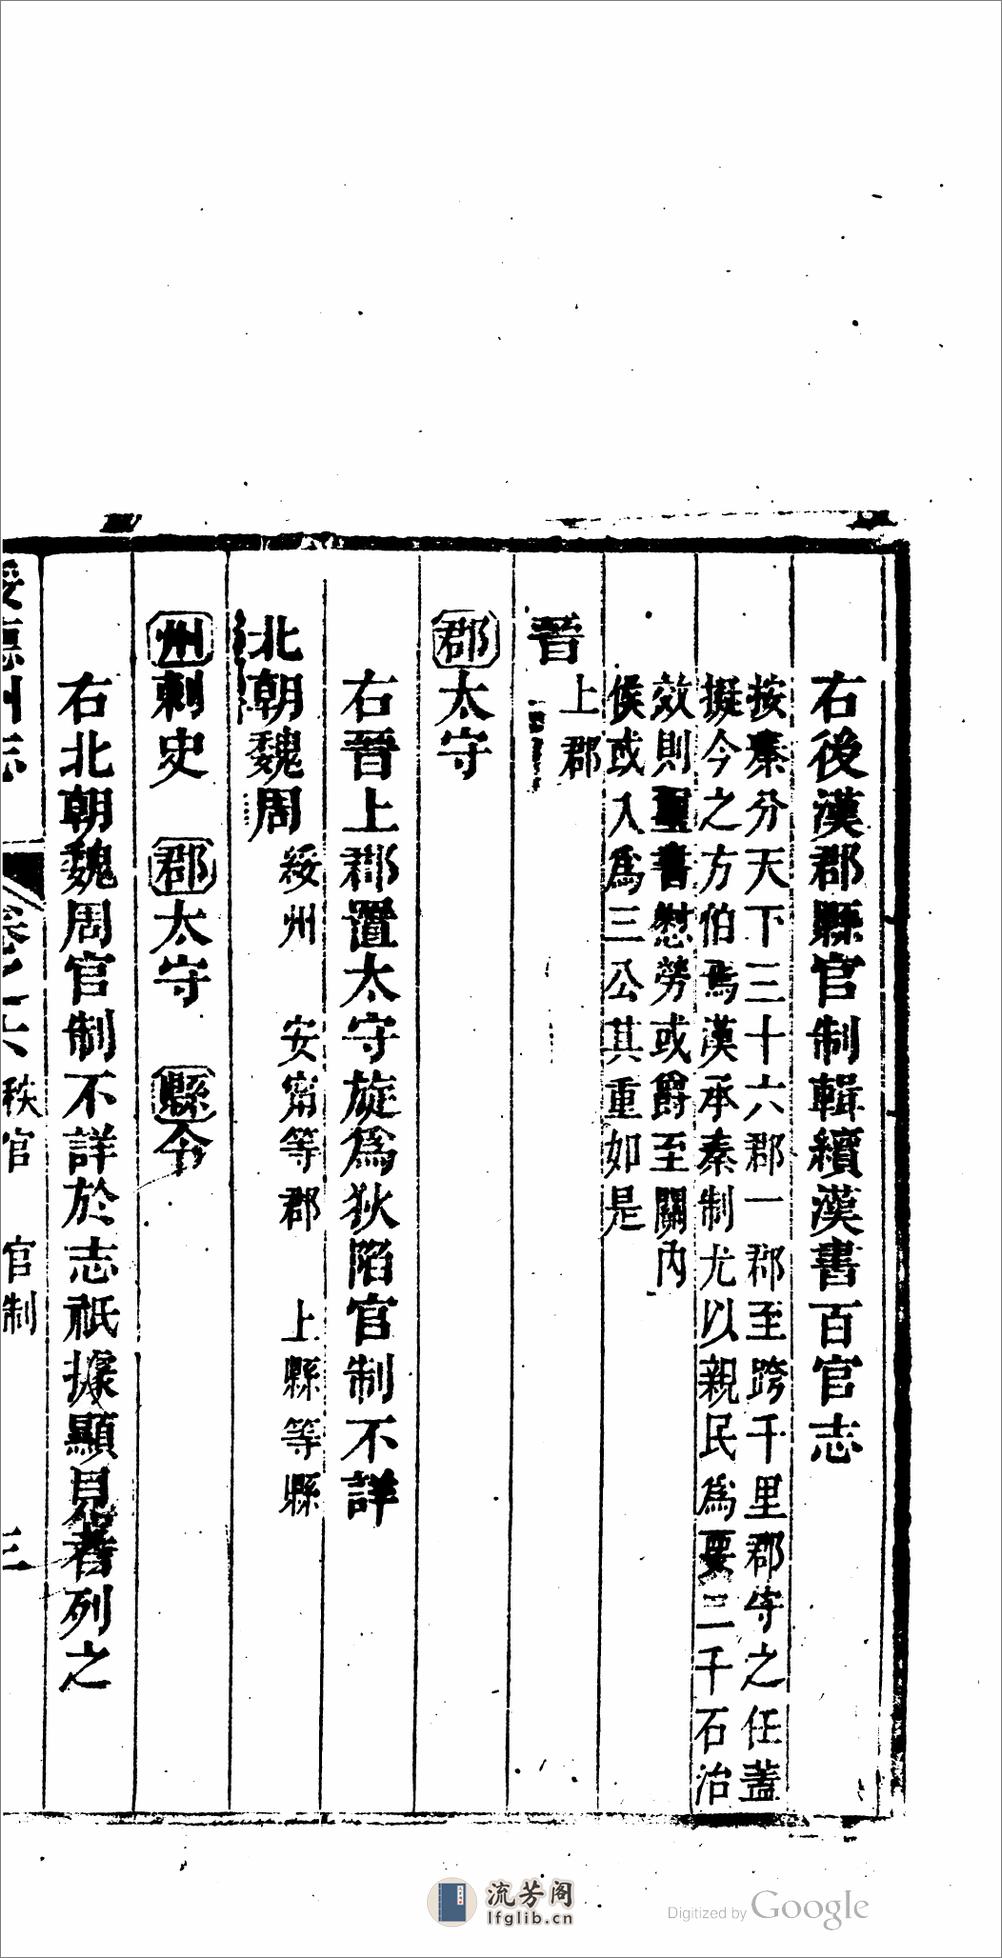 右後漢郡縣官制輯續漢書百官志
按秦分天下三十六郡一郡至跨千里郡守之任蓋
擬今之方伯焉漢承秦制尤以親民爲要二千石治
效則璽書慰勞或爵至關內
侯或入爲三公其重如是
晉 上郡
郡太守
右晉上郡置太守旋爲狄陷官制不詳
北朝魏周 綏州 安甯等郡 上縣等縣
州刺史 郡太守 縣令
右北朝魏周官制不詳於志祇據顯見者列之
綏德州志 卷之六 秩官 官制 三
流芳阁
lfglib.cn
Digitized by Google